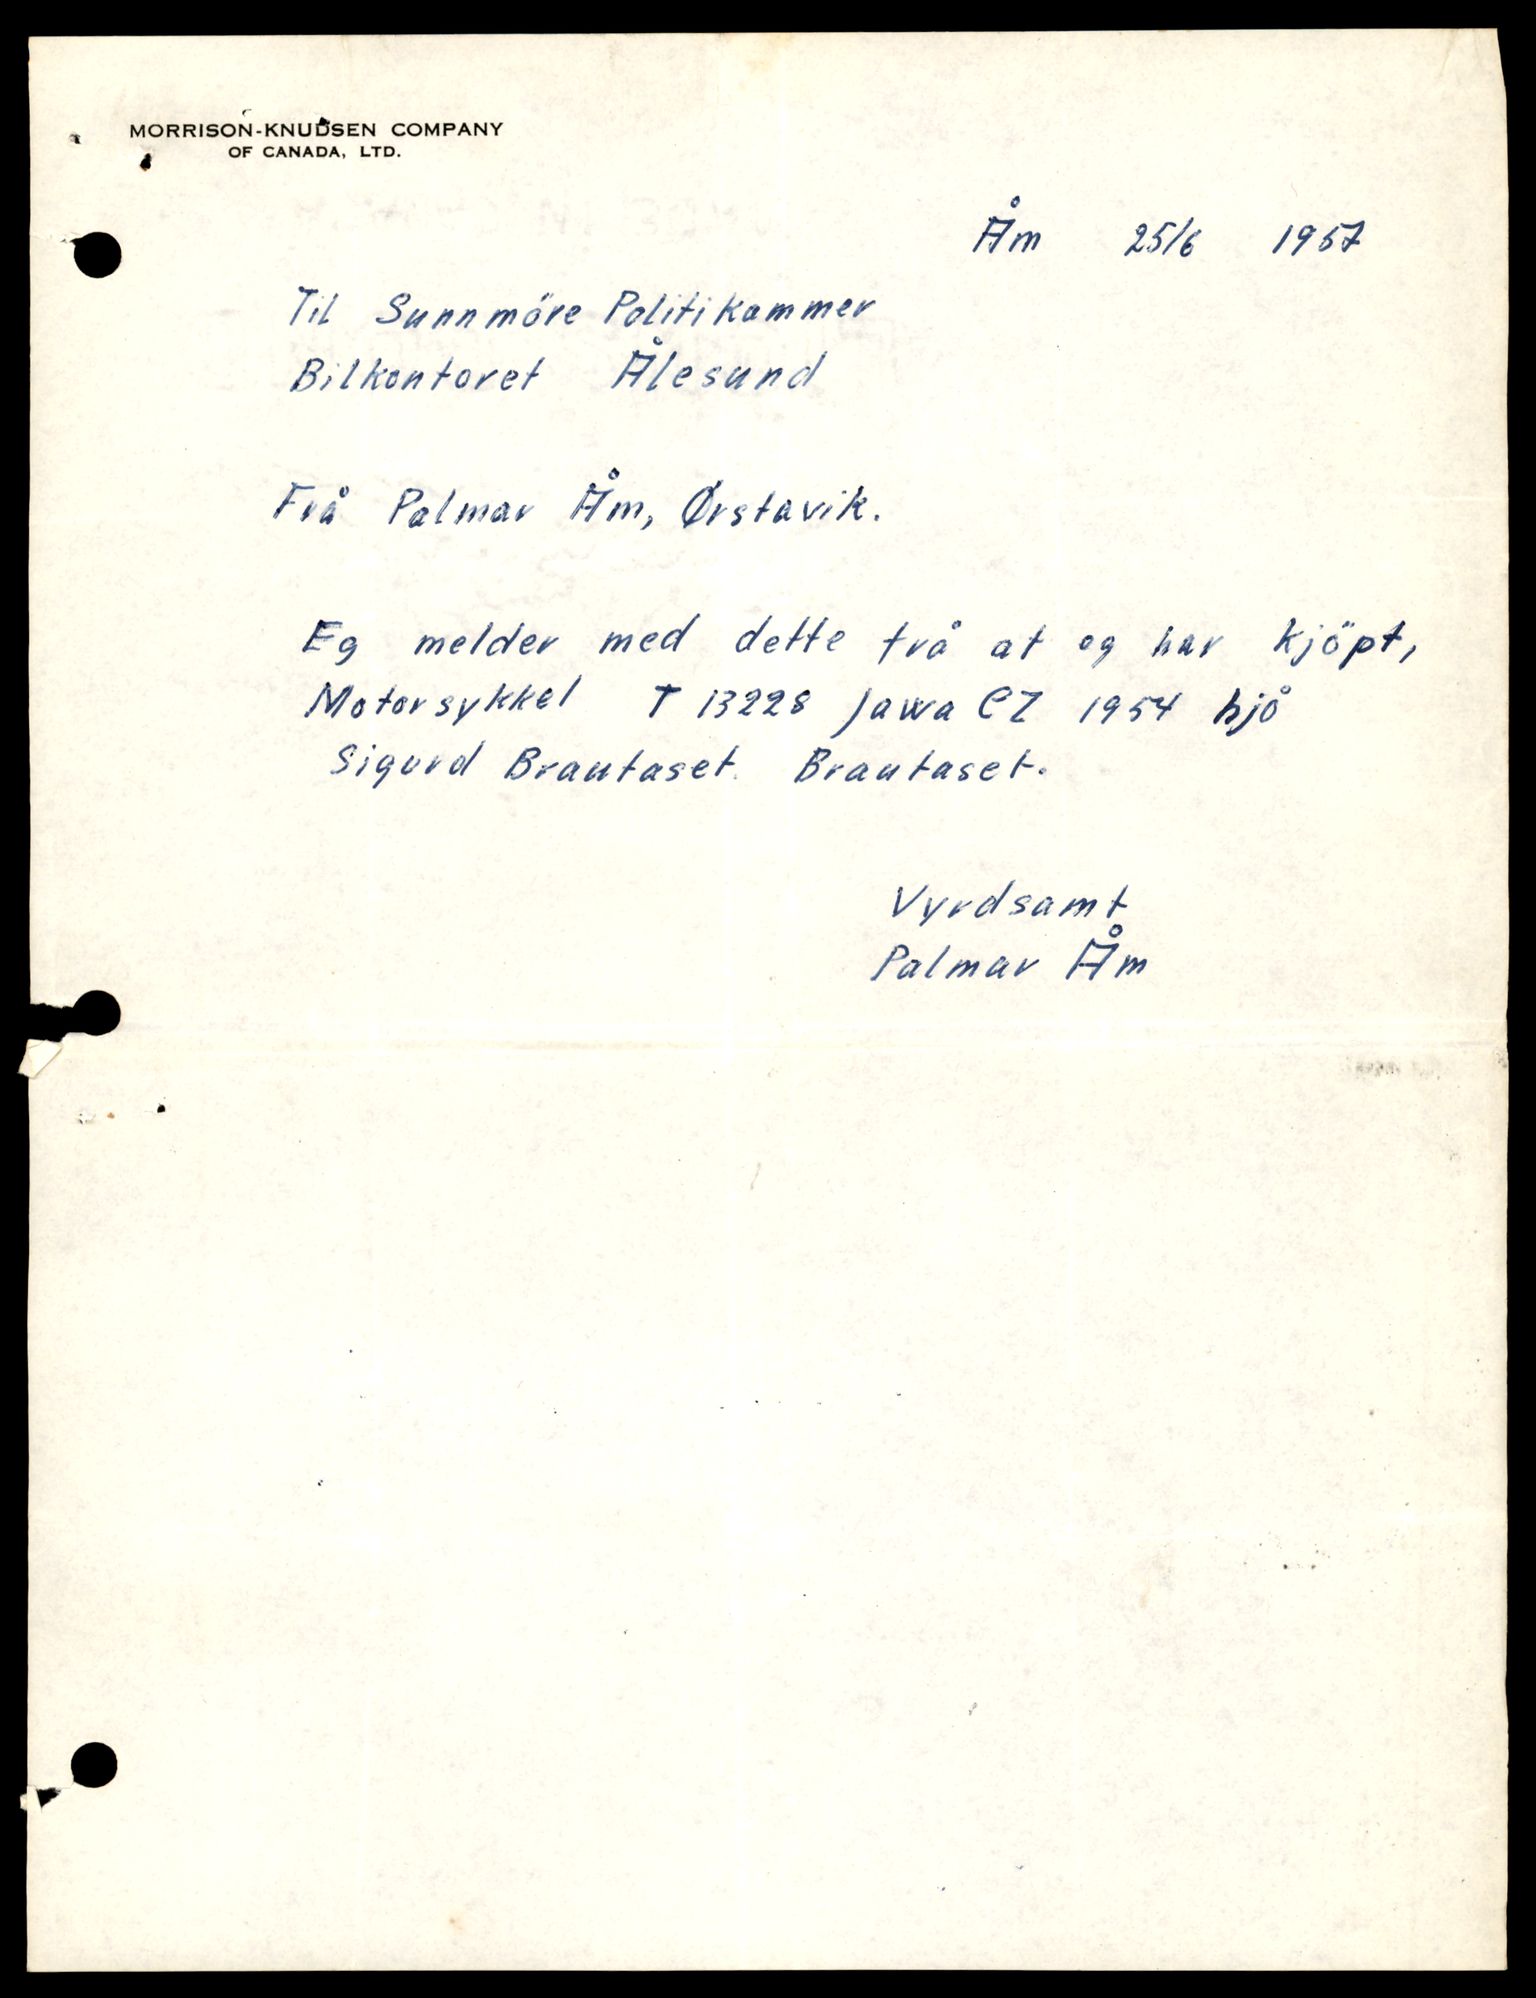 MORRISON-KNUDSEN COMPANY
OF CANADA, LTD.
Åm 25/6 1957
Til Sunnmöre Politikammer
Bilkontoret Ålesund
Frå Palmar Åm, Ørstavik.
Eg melder med dette frå at eg har kjöpt,
Motorsykkel T 13228 Jawa CZ 1954 hjå
Sigurd Brautaset. Brautaset.
Vyrdsamt
Palmar Åm